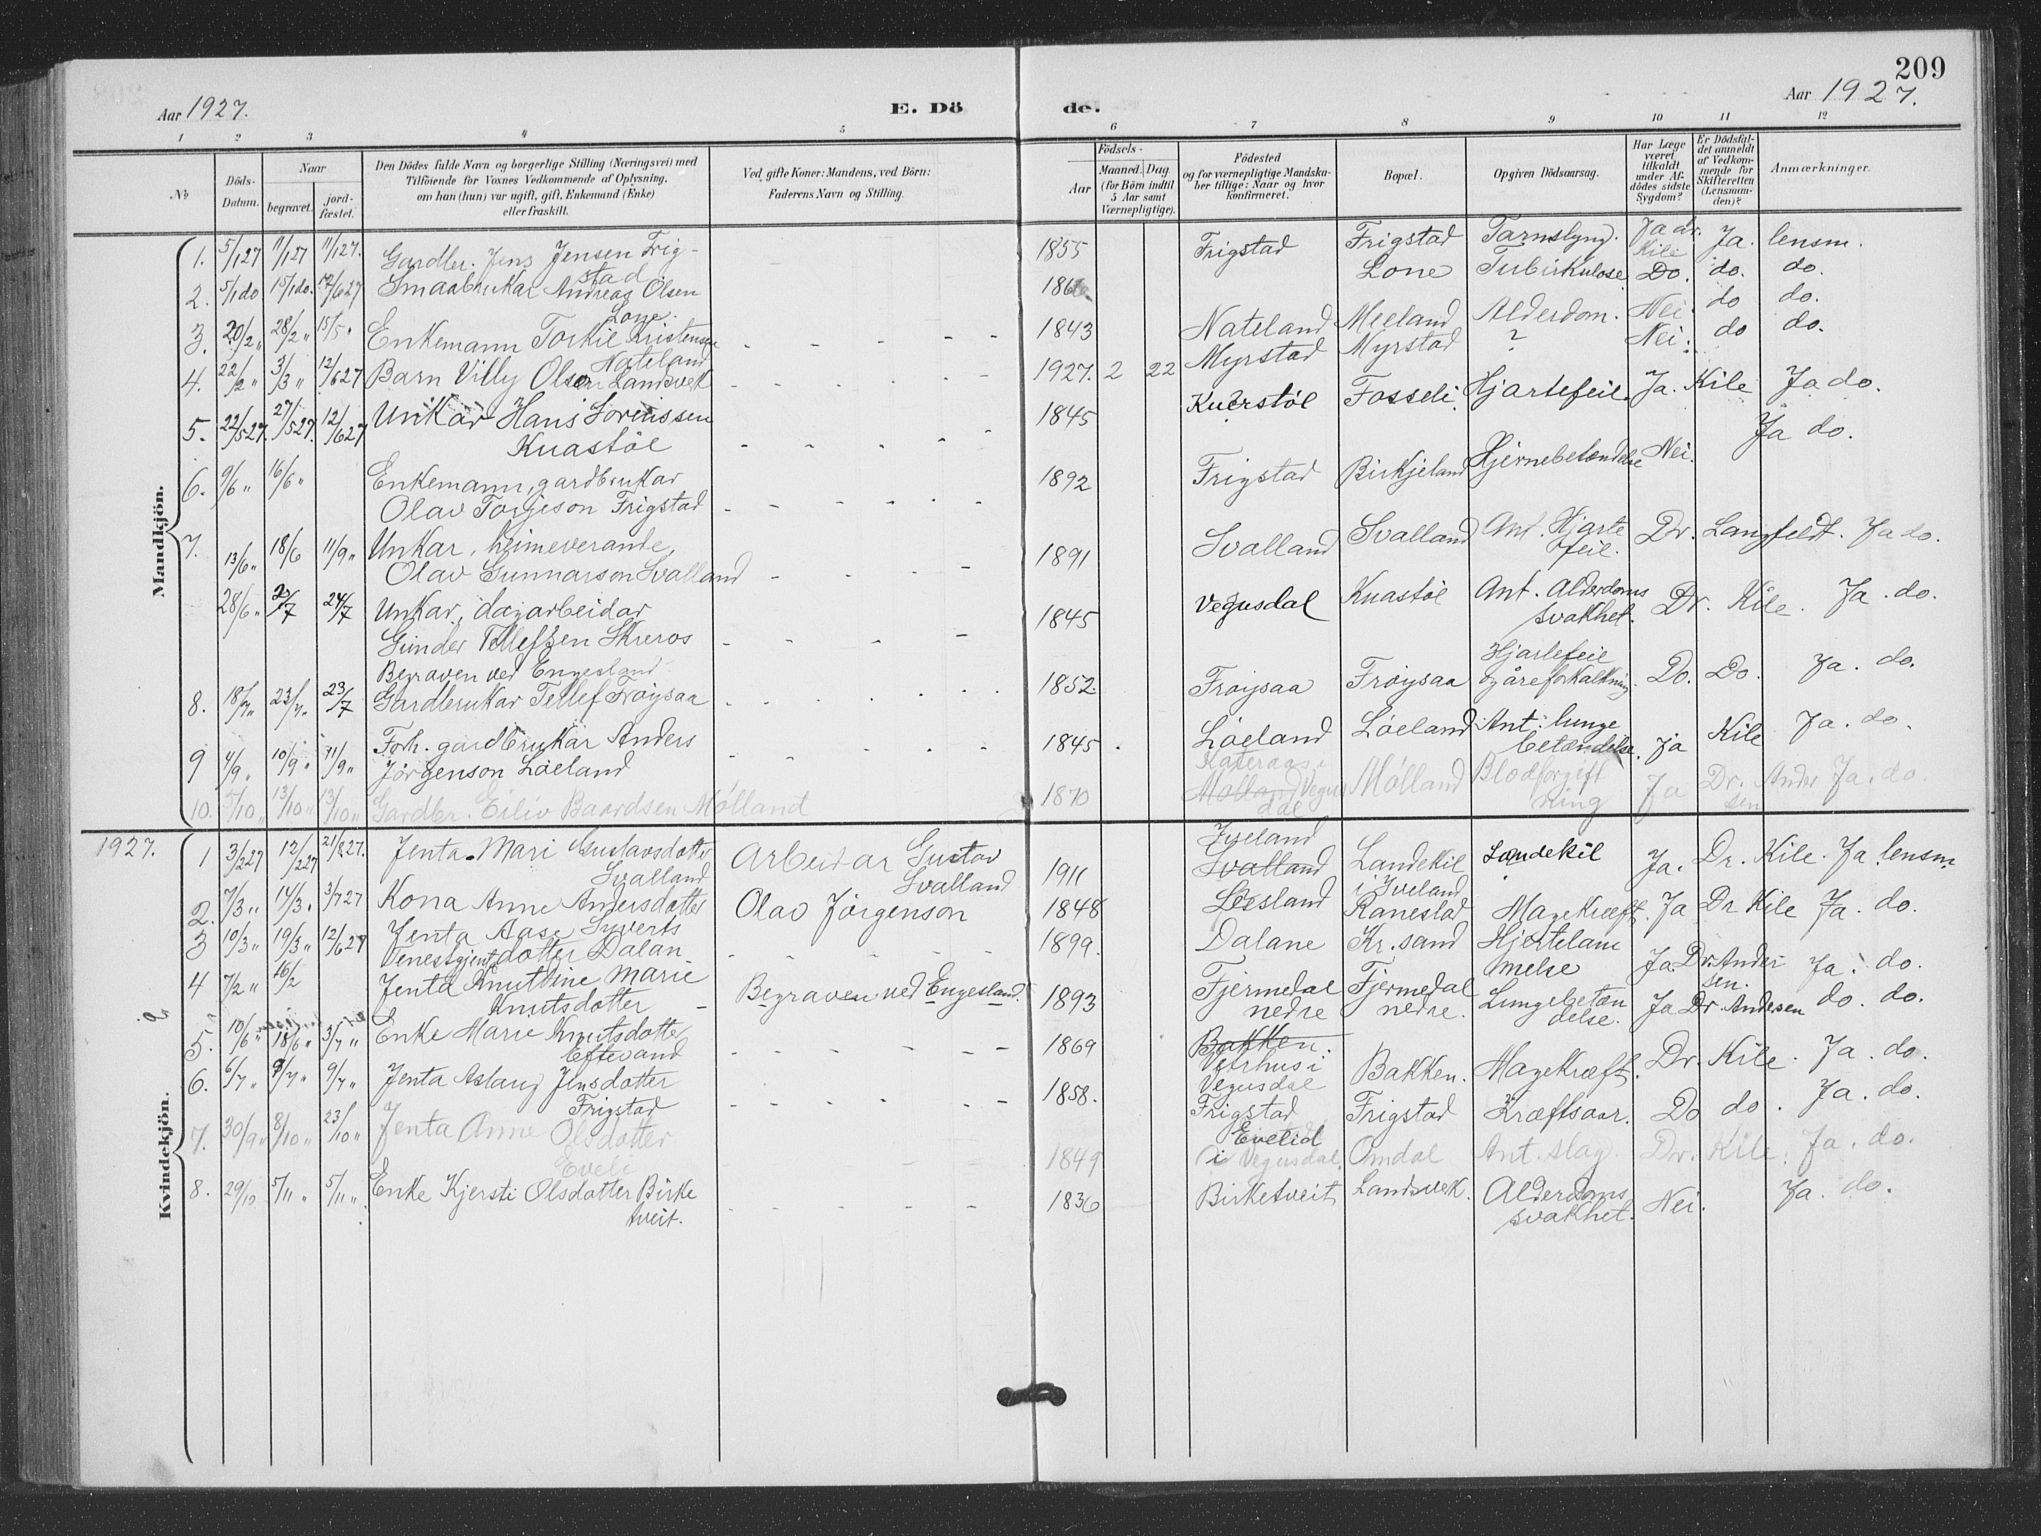 209
Aar 1927.
E. Dö de.
Aar 1927.
1 2 3 4 5 6 7 8 9 10 11 12
No
Döds-Datum.
Naar
begravet.
jord-fæstet.
Den Dödes fulde Navn og borgerlige Stilling (Næringsvei) med
Tilföiende for Voxnes Vedkommende af Oplysning,
om han (hun) var ugift, gift, Enkemand (Enke)
eller fraskilt.
Ved gifte Koner: Mandens, ved Börn:
Faderens Navn og Stilling.
Födsels-
Aar
Maaned. Dag
(for Börn indtil
5 Aar samt
Værnepligtige).
Födested
og for værnepligtige Mandska-
ber tillige: Naar og hvor
konfirmeret.
Bopæl.
Opgiven Dödsaarsag.
Har Læge
været
tilkaldt
under Af-
dödes sidste
Sygdom?
Er Dödsfal-
det anmeldt
af Vedkom-
mende for
Skifteretten
(Lensman-
den)?
Anmærkninger.
Mandkjön.
1. 5/1 27 11/1 27 11/1 27. Gardbr. Jens Jensen Frig-
stad 1855 Frigstad Frigstad Tarmslyng. Ja dr. Kile Ja. lensm.
2. 5/1 do 15/1 do. 12/6 27 Smaabrukar Andreas Olsen
Lone. Lone Tubirkulose Do. do. do.
3. 20/2 " 28/2 " 15/5 " Enkemann Torkil Kristensen
Nateland 1843 Nateland Meeland Alderdom. Nei. do do.
4. 22/2 " 3/3 " 12/6 27 Barn Villy Olsen Landsvek 1927. 2 22 Myrstad Myrstad ? Nei. do do.
5. 22/5 27. 27/5 27. 12/6 27 Unkar Hans Lorenssen
Kuastöl 1845 Kuerstöl Fosseli Hjartefeil. Ja. Kile Ja do.
6. 9/6 " 16/6 " Enkemann, gardbrukar
Olav Torjeson Frigstad 1892 Frigstad Birkjeland Hjernebetændelse Nei. Ja do.
7. 13/6 " 18/6 11/9 " Unkar, heimeverande,
Olav Gunnarson Svalland 1891 Svalland Svalland Ant. Hjarte
feil. Dr. Langfeldt. Ja do.
28/6 " 2/7 24/7 Unkar, dagarbeidar
Gunder Tellefsen Skreros
Begraven ved Engesland 1845 Vegusdal Kuastöl Ant. Alderdoms
svakhet. Dr. Kile. Ja. do.
8. 18/7 " 23/7 " 23/7 Gardbrukar Tellef Frøysaa 1852. Frøysaa Frøysaa Hjartefeil
og åreforkalkning. Do. Do. Ja. do.
9 4/9 " 10/9 " 11/9 " Forh. gardbrukar Anders
Jørgenson Løeland 1845. Løeland Løeland Ant. lunge
betændelse. Ja Kile Ja. do.
10. 7/10 " 13/10 " 13/10 " Gardbr. Eiliv Baardsen Mølland 1870 Mølland Vegus
dal Mølland Blodforgift
ning Ja Dr. Ander
sen Ja. do
Kvindekjön.
1927. 1 3/2 27 12/2 27 21/8 27. Jenta. Mari Gustavsdotter
Svalland Arbeidar Gustav
Svalland 1911 Iveland
Svalland Landekil
i Iveland Landekil Ja. Dr. Kile. Ja lensm
2. 7/3 " 14/3 " 3/7 27 Kona Anne Andersdotter Olav Jörgenson 1848 Leesland Ranestad Magekræft. Ja Dr Kile Ja. do.
3 10/3 " 19/3 " 12/6 27 Jenta Aase Syverts
dotter Dalan 1899. Dalane Kr. sand Hjertelam
melse Ja. Dr. Ander
sen. Ja. do.
4 7/2 " 16/2 Jenta Knuttine Marie
Knutsdotter Begraven ved Engesland. 1893 Fjermedal
nedre Fjermedal
nedre. Lungebetæn
delse. Ja Dr. Andersen do. do.
5. 10/6 " 18/6 " 3/7 " Enke Marie Knutsdotter
Eftevand 1869 Bakken.
Vetrhus i
Vegusdal Bakken. Magekræft. Dr. Kile. Ja. do.
6. 6/7 " 9/7 " 9/7 " Jenta Aslaug Jensdotter
Frigstad 1858. Frigstad Frigstad Kræftsaar. Do do. Ja. do.
7. 30/9 " 8/10 " 23/10 " Jenta Anne Olsdotter
Eveli 1849 Evelid
i Vegusdal. Omdal Ant. slag. Dr. Kile. Ja. do.
8. 29/10 5/11 " 5/11 " Enke Kjersti Olsdotter Birke
tveit. 1836 Birketveit Landsvek. Alderdoms
svakhet. Nei. Ja. do.